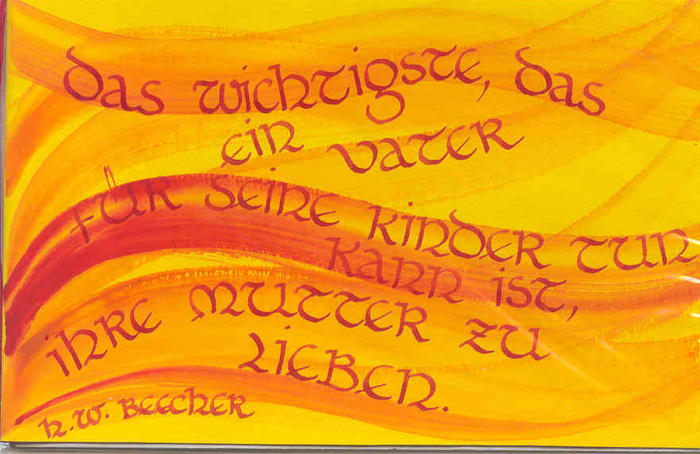 Das wichtigste, das
ein Vater
für seine Kinder tun
kann ist,
ihre Mutter zu
lieben.
H.W. Beecher